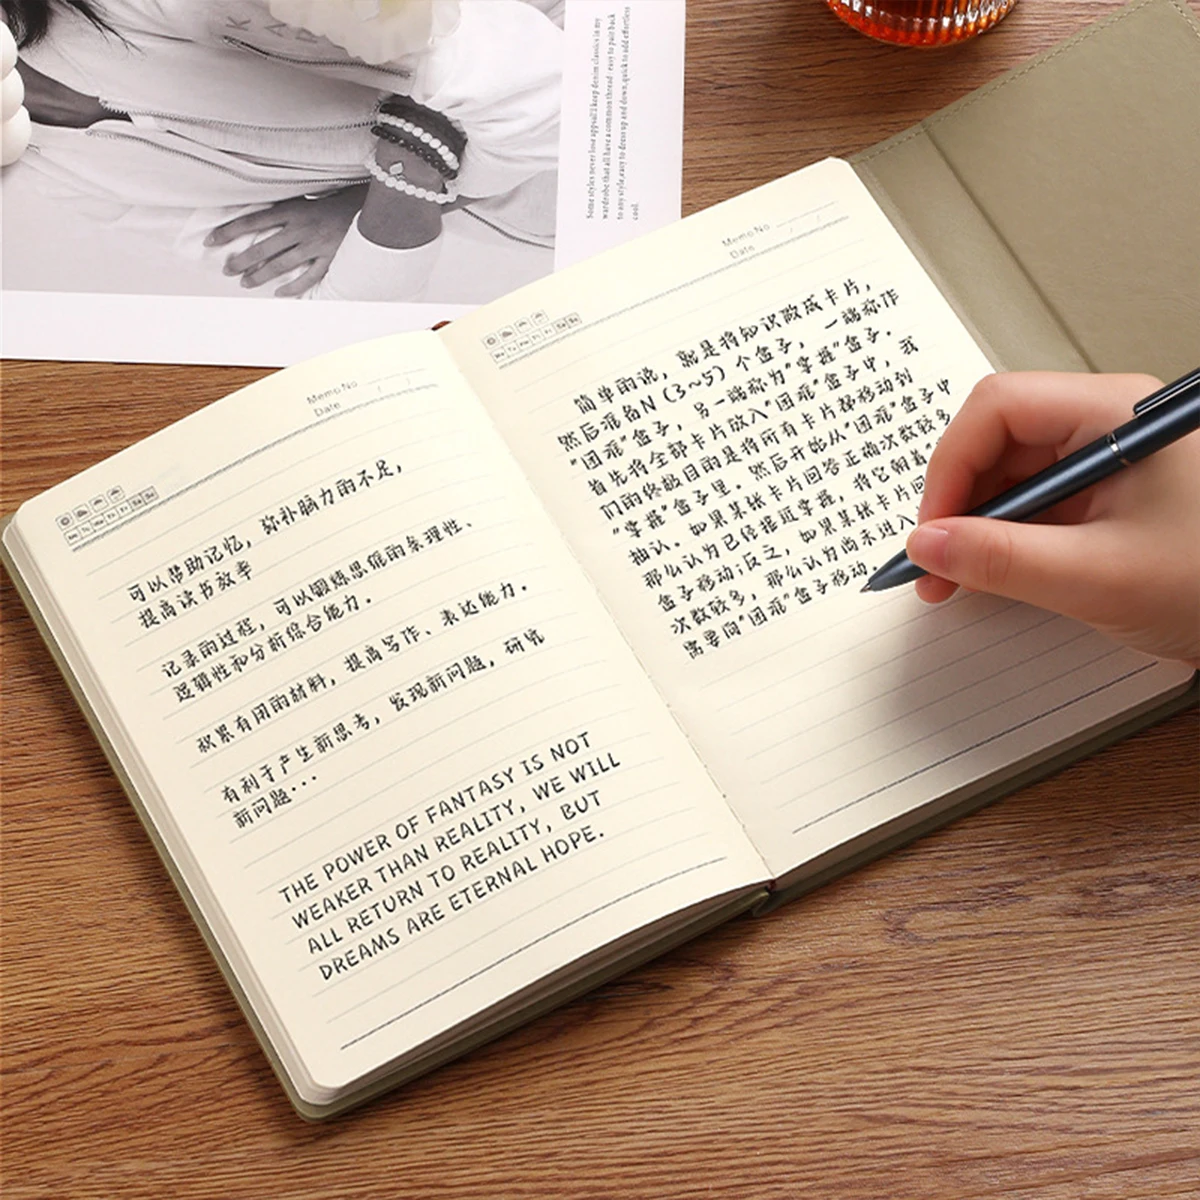 Some styles never lose appeal!I keep denim classics in my
wardrobe that all have a common thread: easy to pair back
to any style,easy to dress up and down,quick to add effortless
cool.
Memo No
Date / /
Mo Tu We Th Fr Sa Su
可以帮助记忆，弥补脑力的不足，
提高读书效率
记录的过程，可以锻炼思维的条理性、
逻辑性和分析综合能力．
积累有用的材料，提高写作、表达能力．
有利于产生新思考，发现新问题，研究
新问题…
THE POWER OF FANTASY IS NOT
WEAKER THAN REALITY, WE WILL
ALL RETURN TO REALITY, BUT
DREAMS ARE ETERNAL HOPE.
Memo No
Date / /
Mo Tu We Th Fr Sa Su
简单的说，就是将知识做成卡片，
然后准备N（3~5）个盒子，一端称作
"困难"盒子，另一端称为"掌握"盒子．
首先将全部卡片放入"困难"盒子中，我
们的终极目的是将所有卡片都移动到
"掌握"盒子里．然后开始从"困难"盒子中
抽认．如果某张卡片回答正确次数较多
那么认为已经接近掌握，将它朝着"
盒子移动；反之，如果某张卡片回
次数较多，那么认为尚未进入
需要向"困难"盒子移动．